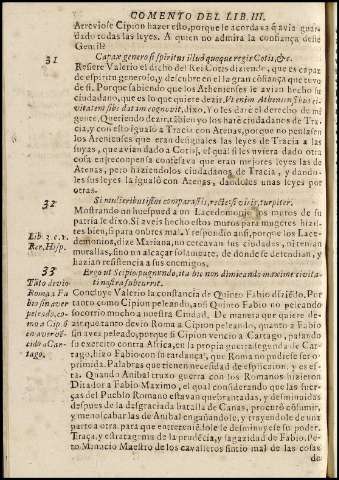 COMENTO DEL LIB. III.
Atreviose Cipion hazer esto, porque le acordava q̃ avia guar
dado todas las leyes. A quien no admira la confiança deste
Gentil?
31
Capax generosi spiritus illud quoque regis Cotis, &c.
Refiere Valerio el dicho del Rei Cotis diziendo, que es capaz
de espiritu generoso, y descubre en el la gran cõfiança que tuvo
de si. Porque sabiendo que los Athenienses le avian hecho su
ciudadano, que es lo que quiere dezir, Vt enim Atheniensiũ à se ci-
vitatem sibi datam cognovit, dixo, Yo les daré el derecho de mi
gente. Queriendo dezir, tãbien yo los haré ciudadanos de Tra-
cia, y con esto igualó a Tracia con Atenas, porque no pensasen
los Atenienses que eran desiguales las leyes de Tracia a las
suyas, que avian dado a Cotis, el qual si les uviera dado otra
cosa en recompensa confesava que eran mejores leyes las de
Atenas, pero haziendolos ciudadanos de Tracia, y dando-
les sus leyes la igualó con Atenas, dandoles unas leyes por
otras.
32
Si mulieribus istos comparastis, recte: si viris, turpiter.
Mostrando un huesped a un Lacedemonio los muros de su
patria le dixo. Si aveis hecho estos muros para mugeres hizi-
tes bien, si para onbres mal. Y respondio ansi, porque los Lace-
Lib. 2. c. 1.
Rer. Hisp.
demonios, dize Mariana, no cercavan sus ciudades, ni tenian
murallas, sino un alcaçar solamente, de donde se defendian, y
hazian resistencia a sus enemigos.
33
Ergo ut Scipio pugnando, ita hic non dimicando maxime civita-
ti nostræ subcurrit.
Tãto devio
Roma a Fa
bio sin aver
peleado, co-
mo a Cipiõ
en aver vẽ-
cido a Car-
tago.
Concluye Valerio la constancia de Quinto Fabio diziẽdo. Por
tanto como Cipion peleando, ansi Quinto Fabio no peleando
socorrio mucho a nuestra Ciudad. De manera que quiere de-
zir que tanto devio Roma a Cipion peleando, quanto a Fabio
sin aver peleado, porque si Cipion vencio a Cartago, pasando
su exercito contra Africa, en la propia guerra segunda de Car-
tago, hizo Fabio con su tardança, que Roma no pudiese ser o-
primida. Palabras que tienen necesidad de esplicacion, y es es-
ta. Quando Anibal truxo guerra con los Romanos hizieron
Ditador a Fabio Maximo, el qual considerando que las fuer-
ças del Pueblo Romano estavan quebrantadas, y desminuidas
despues de la desgraciada batalla de Canas, procuró cõsumir,
y menoscabar las de Anibal engañandole, y trayendole de una
parte a otra, para que entreteniẽdole se desminuyese su poder.
Traça, y estratagema de la prudẽcia, y sagazidad de Fabio. Pe-
ro Minucio Maestro de los cavalleros sintio mal de las cosas
de